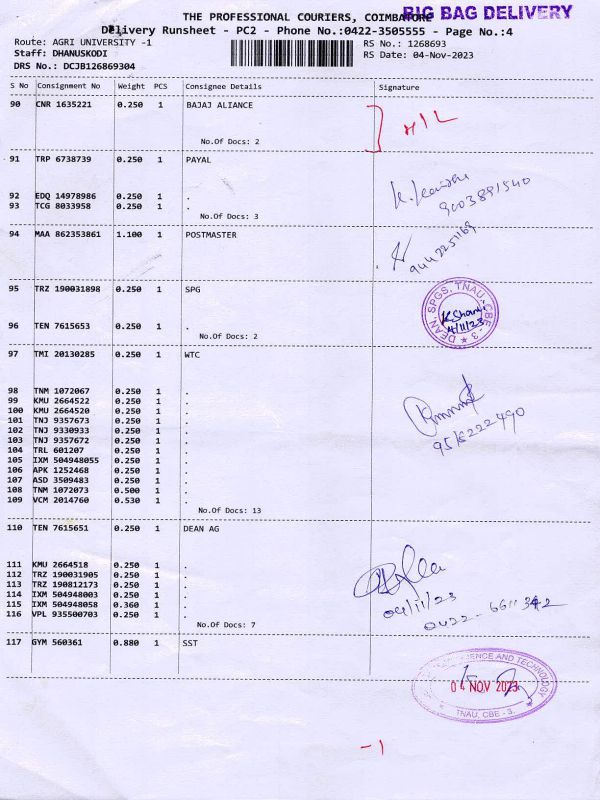 BIG BAG DELIVERY
THE PROFESSIONAL COURIERS, COIMBATORE
Delivery Runsheet - PC2 - Phone No.:0422-3505555 - Page No.:4
Route: AGRI UNIVERSITY -1 RS No.: 1268693
Staff: DHANUSKODI RS Date: 04-Nov-2023
DRS No.: DCJB126869304
S No Consignment No Weight PCS Consignee Details Signature
90 CNR 1635221 0.250 1 BAJAJ ALIANCE
No.Of Docs: 2
91 TRP 6738739 0.250 1 PAYAL
92 EDQ 14978986 0.250 1 .
93 TCG 8033958 0.250 1 .
No.Of Docs: 3
9003891540
94 MAA 862353861 1.100 1 POSTMASTER
9442251169
95 TRZ 190031898 0.250 1 SPG
DEAN, SPGS, TNAU, CBE - 3.
4/11/23
96 TEN 7615653 0.250 1 .
No.Of Docs: 2
97 TMI 20130285 0.250 1 WTC
98 TNM 1072067 0.250 1 .
99 KMU 2664522 0.250 1 .
100 KMU 2664520 0.250 1 .
101 TNJ 9357673 0.250 1 .
102 TNJ 9330933 0.250 1 .
103 TNJ 9357672 0.250 1 .
104 TRL 601207 0.250 1 .
105 IXM 504948055 0.250 1 .
106 APK 1252468 0.250 1 .
107 ASD 3509483 0.250 1 .
108 TNM 1072073 0.500 1 .
109 VCM 2014760 0.530 1 .
No.Of Docs: 13
110 TEN 7615651 0.250 1 DEAN AG
111 KMU 2664518 0.250 1 .
112 TRZ 190031905 0.250 1 .
113 TRZ 190812173 0.250 1 .
114 IXM 504948003 0.250 1 .
115 IXM 504948058 0.360 1 .
116 VPL 935500703 0.250 1 .
No.Of Docs: 7
04/11/23
117 GYM 560361 0.880 1 SST
SCIENCE AND TECHNOLOGY
04 NOV 2023
TNAU, CBE - 3.
-1